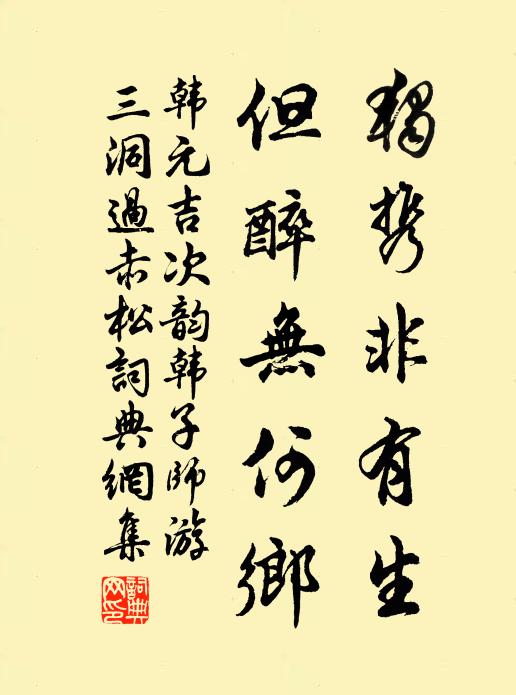 獨携非有生
但醉無何鄉
韩元吉次韵韩子師游
三洞過赤松詞典網集
詞典
网印